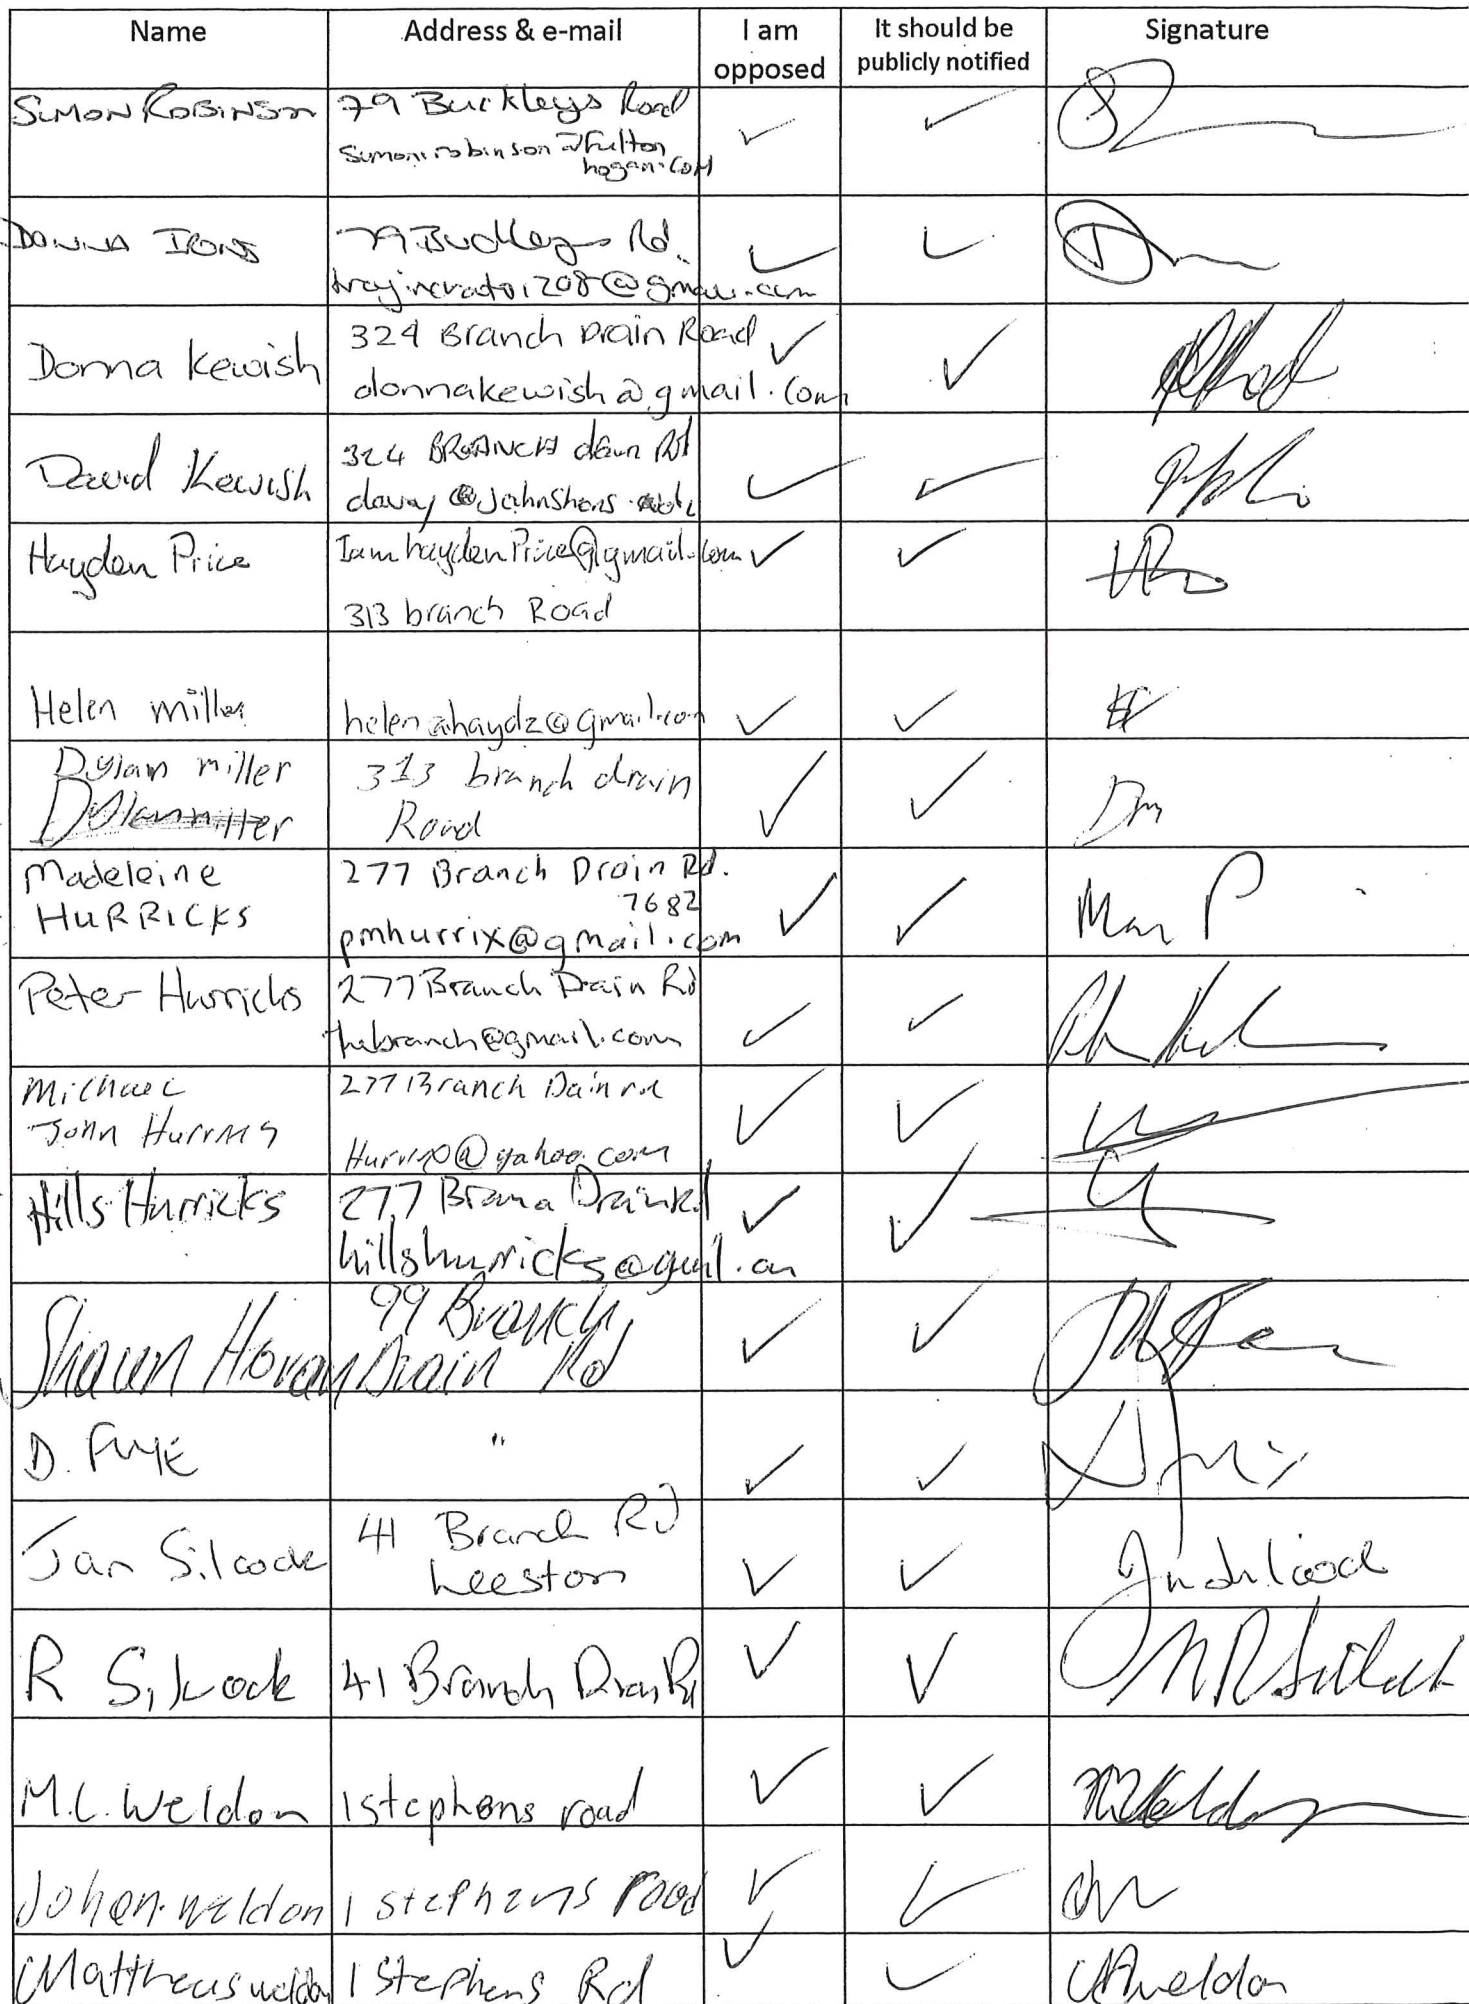 Name Address & e-mail I am opposed It should be publicly notified Signature
SIMON ROBINSON 79 Buckleys Road
simon.robinson@fulton
hogan.com
DONNA IRONS 79 Buckleys Rd.
208@gmail.com
Donna Kewish 324 Branch Drain Road
donnakewish@gmail.com
David Kewish 324 BRANCH drain Rd
davey@
Hayden Price IamhaydenPrice@gmail.com
313 branch Road
Helen miller helenahaydz@gmail.com
Dylan miller 313 branch drain
Dylan miller Road
Madeleine 277 Branch Drain Rd.
HURRICKS 7682
pmhurrix@gmail.com
Peter Hurricks 277 Branch Drain Rd
thebranch@gmail.com
Michael 277 Branch Dain rd
John
@yahoo.com
Hills Hurricks 277 Drain Rd
hillshurricks@
Shaun Horan 99 Branch
Drain Rd
D. "
Jan Silcock 41 Branch Rd
Leeston
R Silcock 41 Branch Drain Rd
M.C. Weldon 1 stephens road
Johan weldon 1 stephens road
Mattheus weldon 1 Stephens Rd